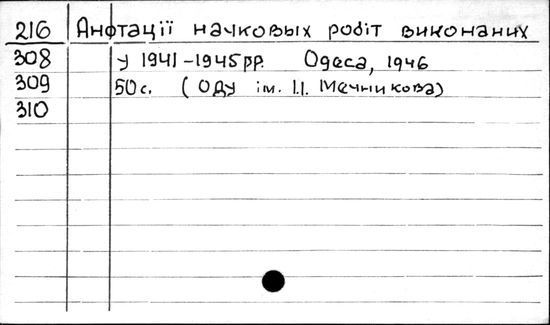 216 Анотації начковых робіт виконаних
308 у 1941-1945рр. Одеса, 1946
309 50с. (ОДУ ім. І.І. Мечникова)
310